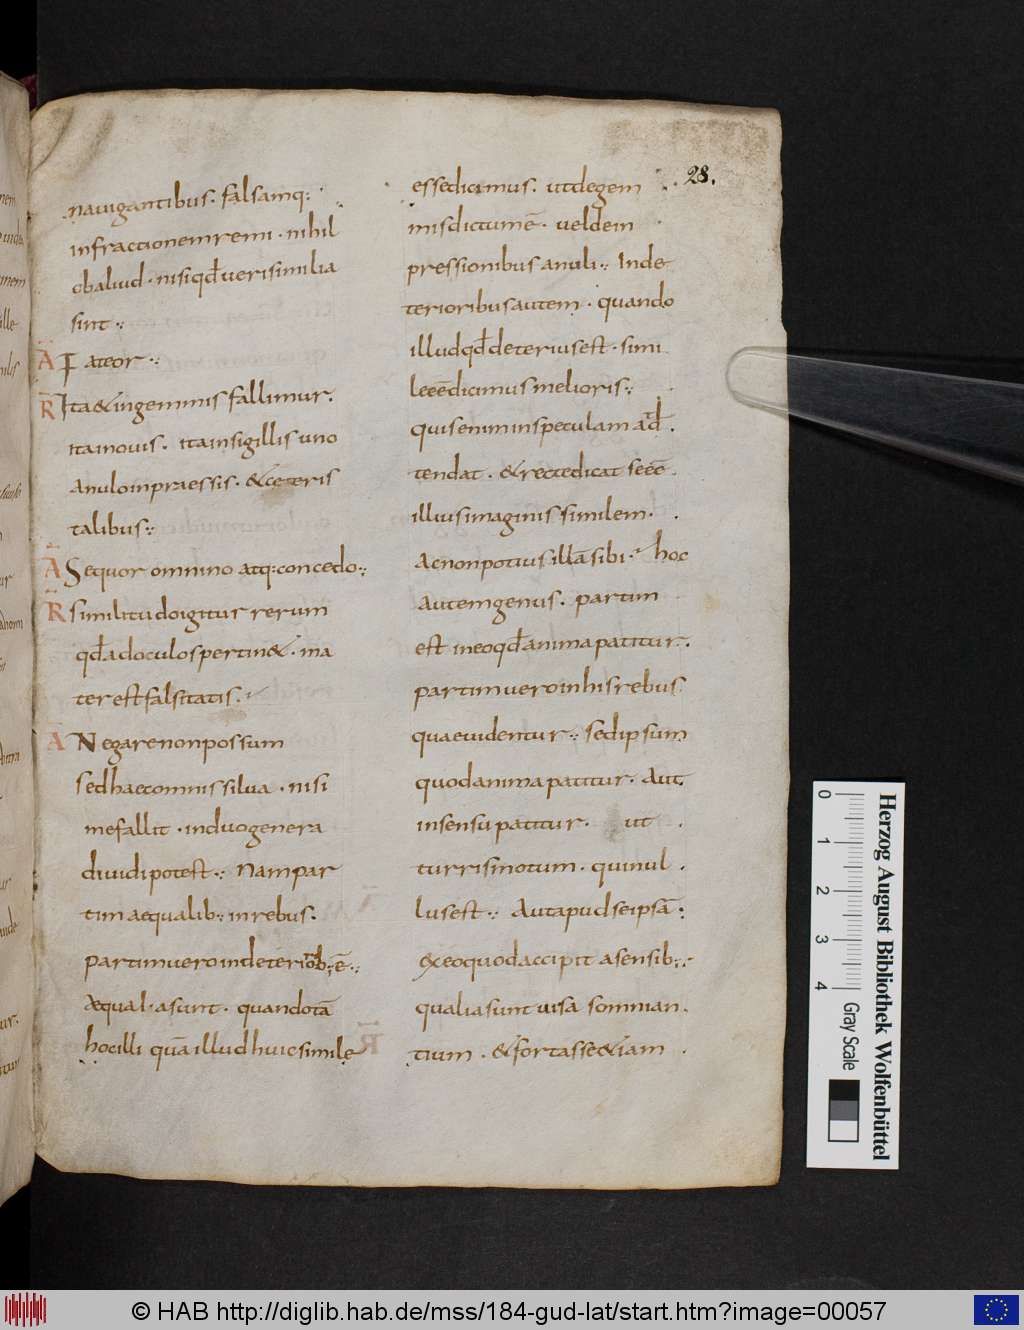 28.
navigantibus. falsamq:
infractionemremi · nihil
obaliud · nisiqđverisimilia
sint ·:
Ā Fateor ·:
R̄ Ita&ingemmisfallimur.
itainouis. itainsigillis uno
anuloinpraessis. &ceteris
talibus ·:
Ā Sequor omnino atq: concedo ·:
R̄ similitudoigitur rerum
qđadoculospertin& · ma
terestfalsitatis.
Ā Negarenonpossum
sedhaecomnissilua · nisi
mefallit · induogenera
dividipotest ·: Nampar
tim aequalib: inrebus.
partimueroindeteriorib; ē ·:
Æqual · asunt · quandotā
hocilli quāilludhuicsimile
essedicimus. utdegem
misdictumē · veldein
pressionibus anuli ·: Inde
terioribusautem · quando
illudqđdeteriusest · simi
leeēdicimusmelioris ·:
quisenim inspeculamađ.
tendat · &rectedicat seeē
illiusimaginissimilem ·
acnonpotiusillāsibi · hoc
autemgenus. partim
est ineoqđanimapatitur.
partimueroinhisrebus
quaevidentur ·: sedipsum
quodanimapatitur. Aut
insensupatitur. ut
turrismotum. quinul
lusest ·: Autapudseipsā:
exeoquodaccipit asensib:
qualiasunt uisa somnian
tium · &fortasse&iam
0 1 2 3 4
Herzog August Bibliothek Wolfenbüttel
Gray Scale
© HAB http://diglib.hab.de/mss/184-gud-lat/start.htm?image=00057